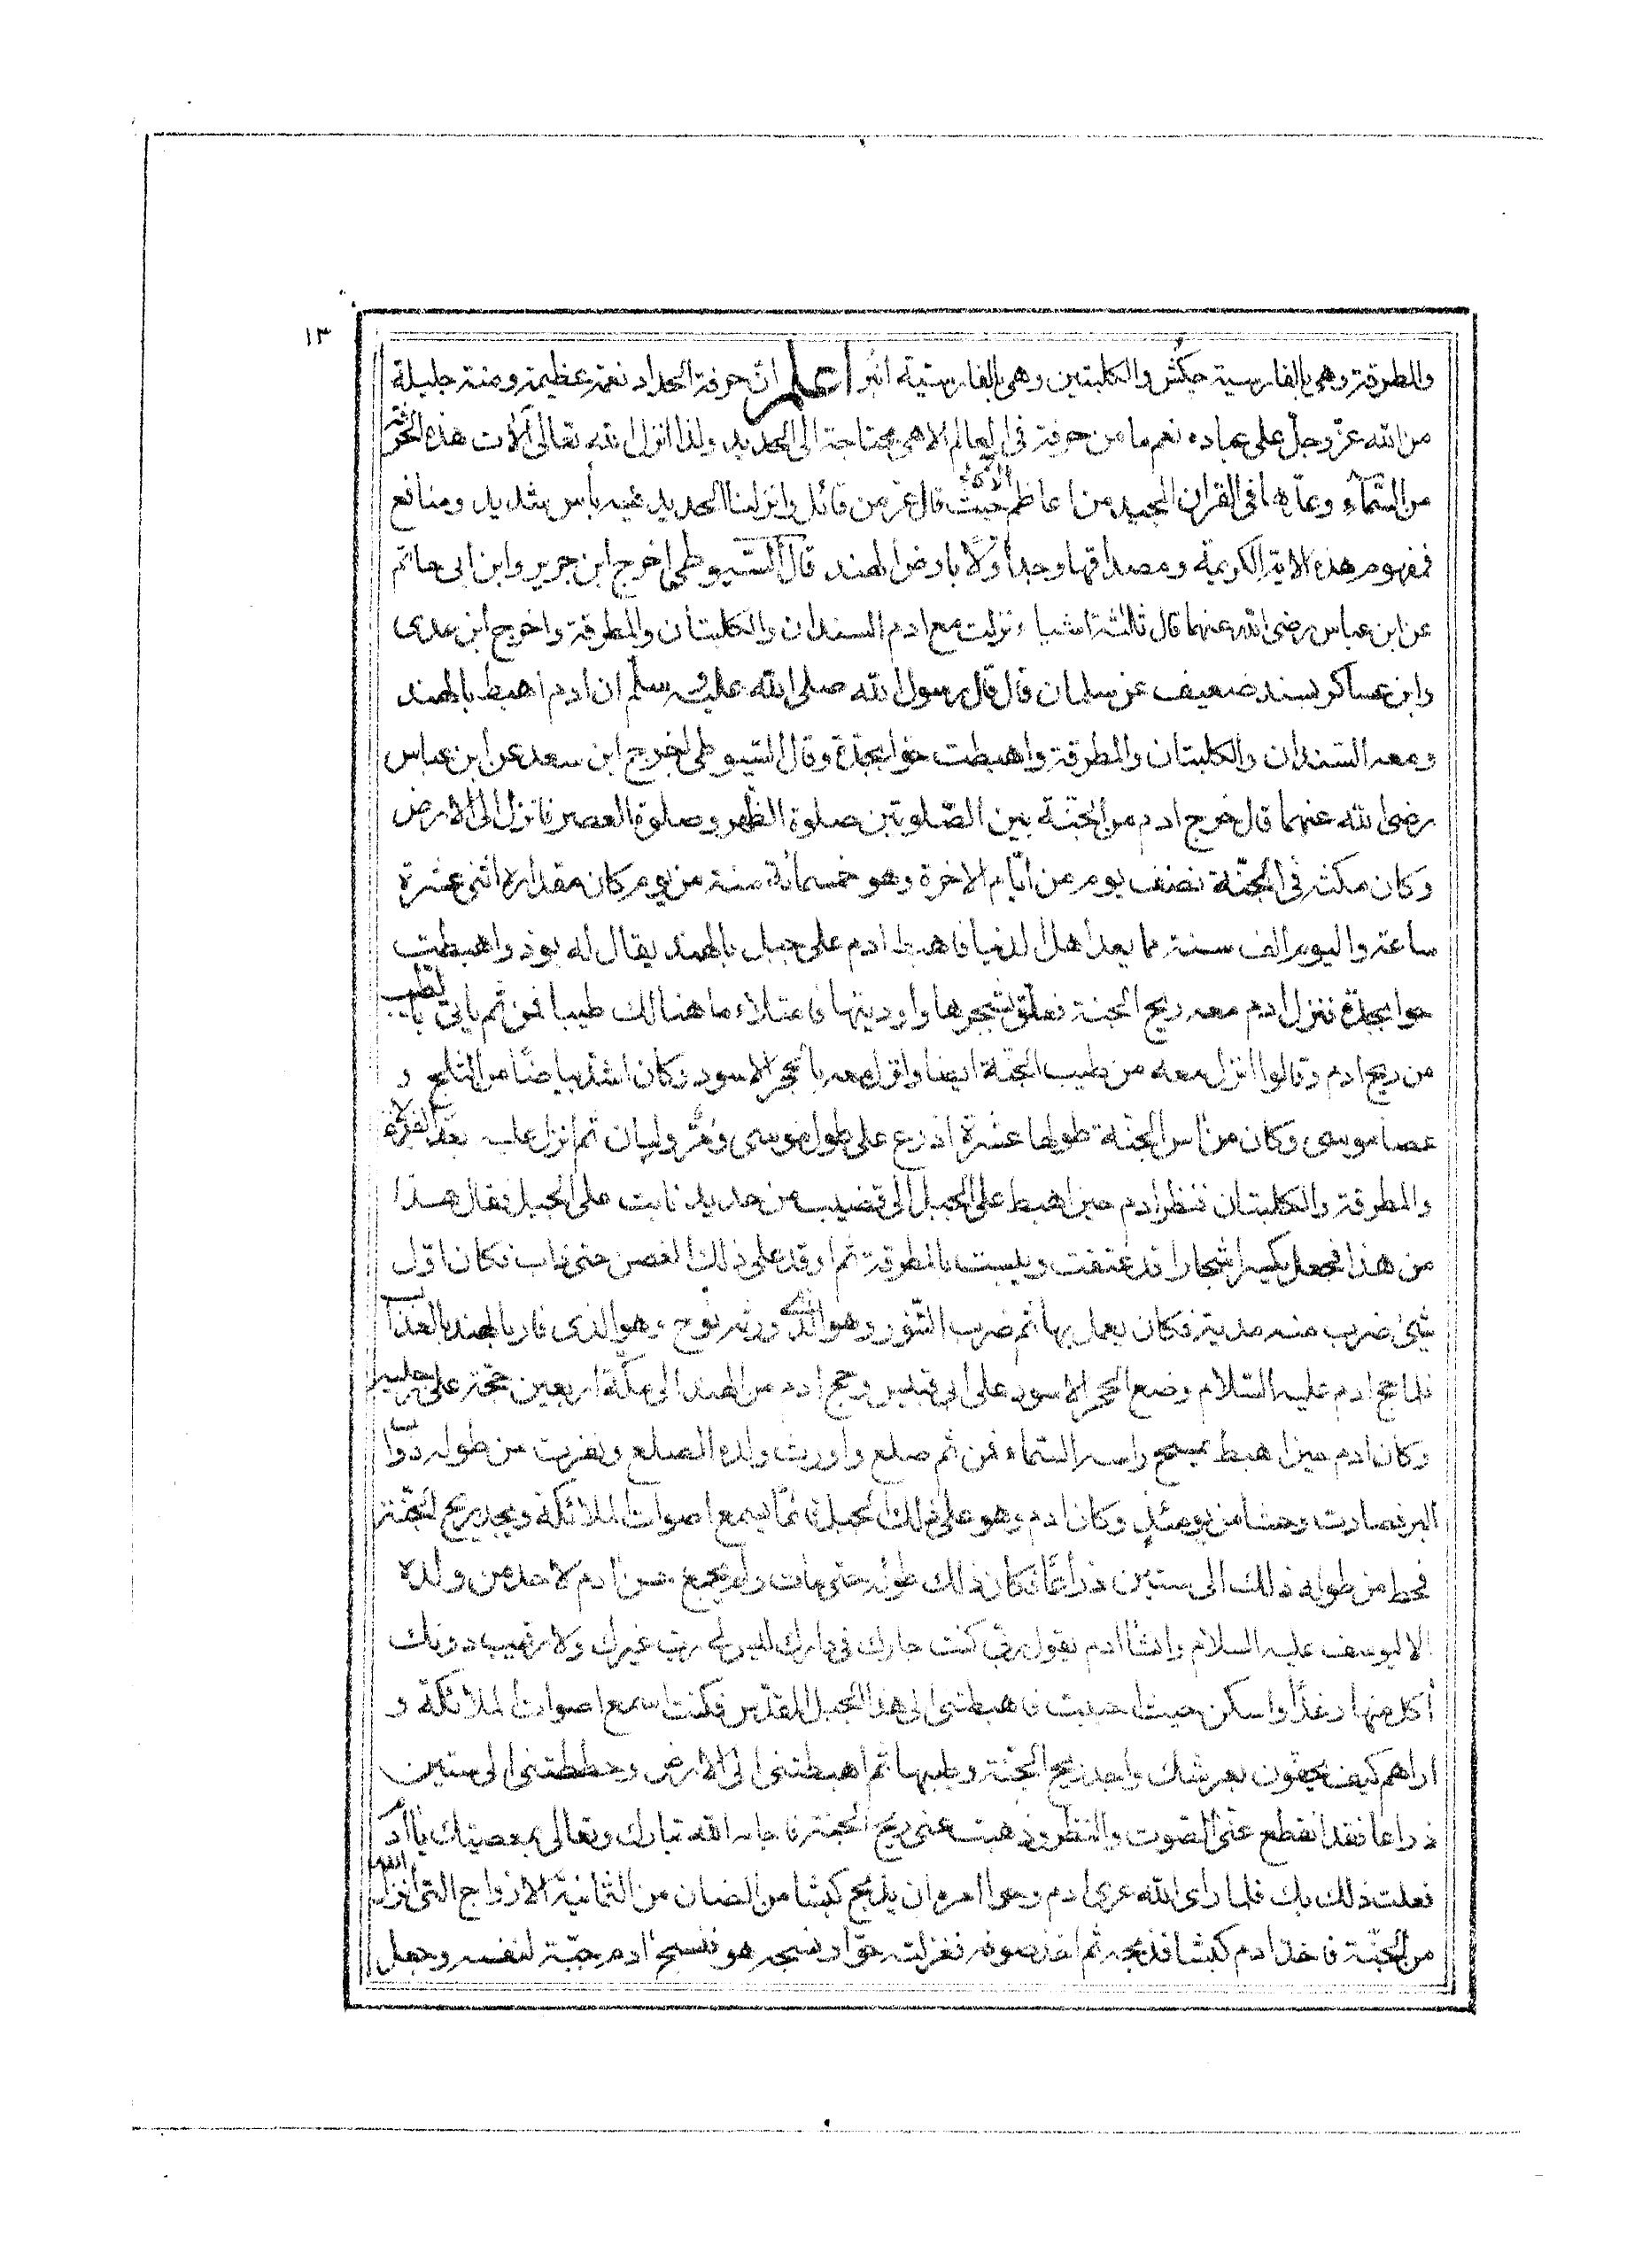 ١٣
والمطرقة وهى بالفارسية چكش والكلبتين وهى بالفارسية انبر اعلم ان حرفة الحداد نعمة عظيمة ومنة جليلة
من الله عز وجل على عباده نعم ما من حرفة فى العالم الا هى محتاجة الى الحديد ولذا انزل الله تعالى آلات هذه الحرفة
من السماء وعدها فى القران المجيد من اعاظم الآلاء حيث قال عز من قائل وانزلنا الحديد فيه بأس شديد ومنافع
فمفهوم هذه الاية الكريمة ومصداقها وجد اولا بارض الهند قال السيوطى اخرج ابن جرير وابن ابى حاتم
عن ابن عباس رضى الله عنهما قال ثلثة اشياء نزلت مع ادم السندان والكلبتان والمطرقة واخرج ابن عدى
وابن عساكر بسند ضعيف عن سلمان قال قال رسول الله صلى الله عليه وسلم ان ادم اهبط بالهند
ومعه السندان والكلبتان والمطرقة واهبطت حوا بجدة وقال السيوطى اخرج ابن سعد عن ابن عباس
رضى الله عنهما قال خرج ادم من الجنة بين الصلوتين صلوة الظهر وصلوة العصر فانزل الى الارض
وكان مكثه فى الجنة نصف يوم من ايام الاخرة وهو خمسمائة سنة من يوم كان مقداره اثنى عشرة
ساعة واليوم الف سنة مما يعد اهل الدنيا فاهبط ادم على جبل بالهند يقال له نوذ واهبطت
حوا بجدة فنزل ادم معه ريح الجنة فعلق بشجرها واوديتها فامتلاء ما هنالك طيبا فمن ثم يأتى بالطيب
من ريح ادم وقالوا انزل معه من طيب الجنة ايضا وانزل معه بالحجر الاسود وكان اشد بياضا من الثلج و
عصا موسى وكان من آس الجنة طولها عشرة اذرع على طول موسى ومر ولبان ثم انزل عليه بعد العلاة
والمطرقة والكلبتان فنظر ادم حين اهبط على الجبل الى قضيب من حديد نابت على الجبل فقال هذا
من هذا فجعل يكسر اشجارا قد عتقت ويبست بالمطرقة ثم اوقد على ذلك الغصن حتى ذاب فكان اول
شئ ضرب منه مدية فكان يعمل بها ثم ضرب التنور وهو الذى ورثه نوح وهو الذى فار بالهند بالعذاب
فلما حج ادم عليه السلام وضع الحجر الاسود على ابى قبيس وحج ادم من الهند الى مكة اربعين حجة على رجليه
وكان ادم حين اهبط يمسح راسه السماء فمن ثم صلع واورث ولده الصلع ونفرت من طوله دواب
البر فصارت وحشا من يومئذ وكان ادم وهو على ذلك الجبل قائما يسمع اصوات الملائكة ويجد ريح الجنة
فحط من طوله ذلك الى ستين ذراعا فكان ذلك طوله حتى مات ولم يجمع حسن ادم لاحد من ولده
الا ليوسف عليه السلام وانشا ادم يقول رب كنت جارك فى دارك ليس لى رب غيرك ولا رقيب دونك
أكل منها رغدا واسكن حيث احببت فاهبطتنى الى هذا الجبل المقدس فكنت اسمع اصوات الملائكة و
اراهم كيف يحفون بعرشك واجد ريح الجنة وطيبها ثم اهبطتنى الى الارض وحططتنى الى ستين
ذراعا فقد انقطع عنى الصوت والنظر وذهبت عنى ريح الجنة فاجابه الله تبارك وتعالى بمعصيتك يا ادم
فعلت ذلك بك فلما راى الله عرى ادم وحوا امره ان يذبح كبشا من الضان من الثمانية الازواج التى انزل الله
من الجنة فاخذ ادم كبشا فذبحه ثم اخذ صوفه فغزلته حوا ونسجه هو فنسج ادم جبة لنفسه وجعل